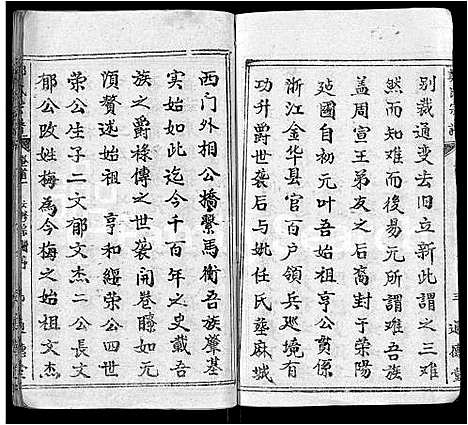 别裁通变去旧立新此謂之三难
然而知难而後易元所謂难吾族
盖周宣王弟友之后裔封于荣阳
延國自初元叶吾始祖亨公贯係
浙江金华县官百户領兵巡境有
功升爵世袭后与姚任氏墓麻城
西门外相公橋繫馬衡吾族肇基
实始如此迄今千百年之史戴吾
族之爵禄傅之世袭開卷瞭如元
湏赘述始祖亨和綬荣公四世
荣公生子二文郁文杰二公長文
郁公改姓梅為今梅之始祖文杰